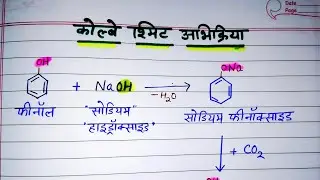 Date
Page
कोल्बे श्मिट अभिक्रिया
OH
ONa
+ NaOH
-H₂O
फीनॉल
"सोडियम
हाइड्रॉक्साइड"
सोडियम फीनॉक्साइड
+ CO₂